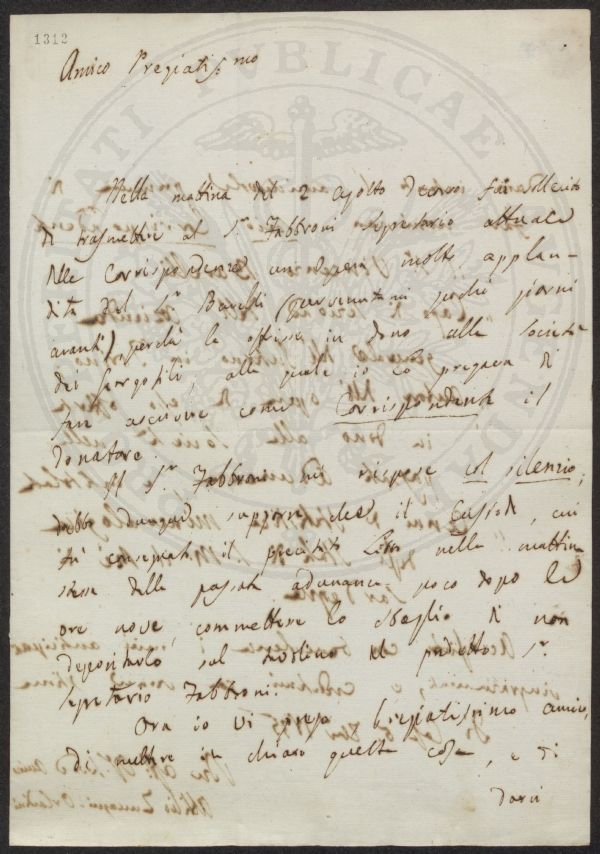 1312
Amico Pregiatis.mo
Nella mattina del 2 agosto decorso fui sollecito
di trasmettere al S.r Fabbroni segretario attuale
delle Corrispondenze un'opera molto applau-
dita del S.r (pervenutami pochi giorni
avanti), perchè la offrisse in dono alla Società
dei Georgofili, alla quale io lo pregava di
fare ascrivere come Corrispondente il
Donatore.
Il S.r Fabbroni mi rispose col silenzio;
debbo dunque supporre che il Custode, cui
fu consegnato il precitato Libro nella mattina
stessa della passata adunanza poco dopo le
ore nove, commettesse lo sbaglio di non
depositarlo sul tavolino del predetto S.r
segretario Fabbroni.
Ora io vi prego Pregiatissimo amico,
di mettere in chiaro questa cosa, e di
darvi